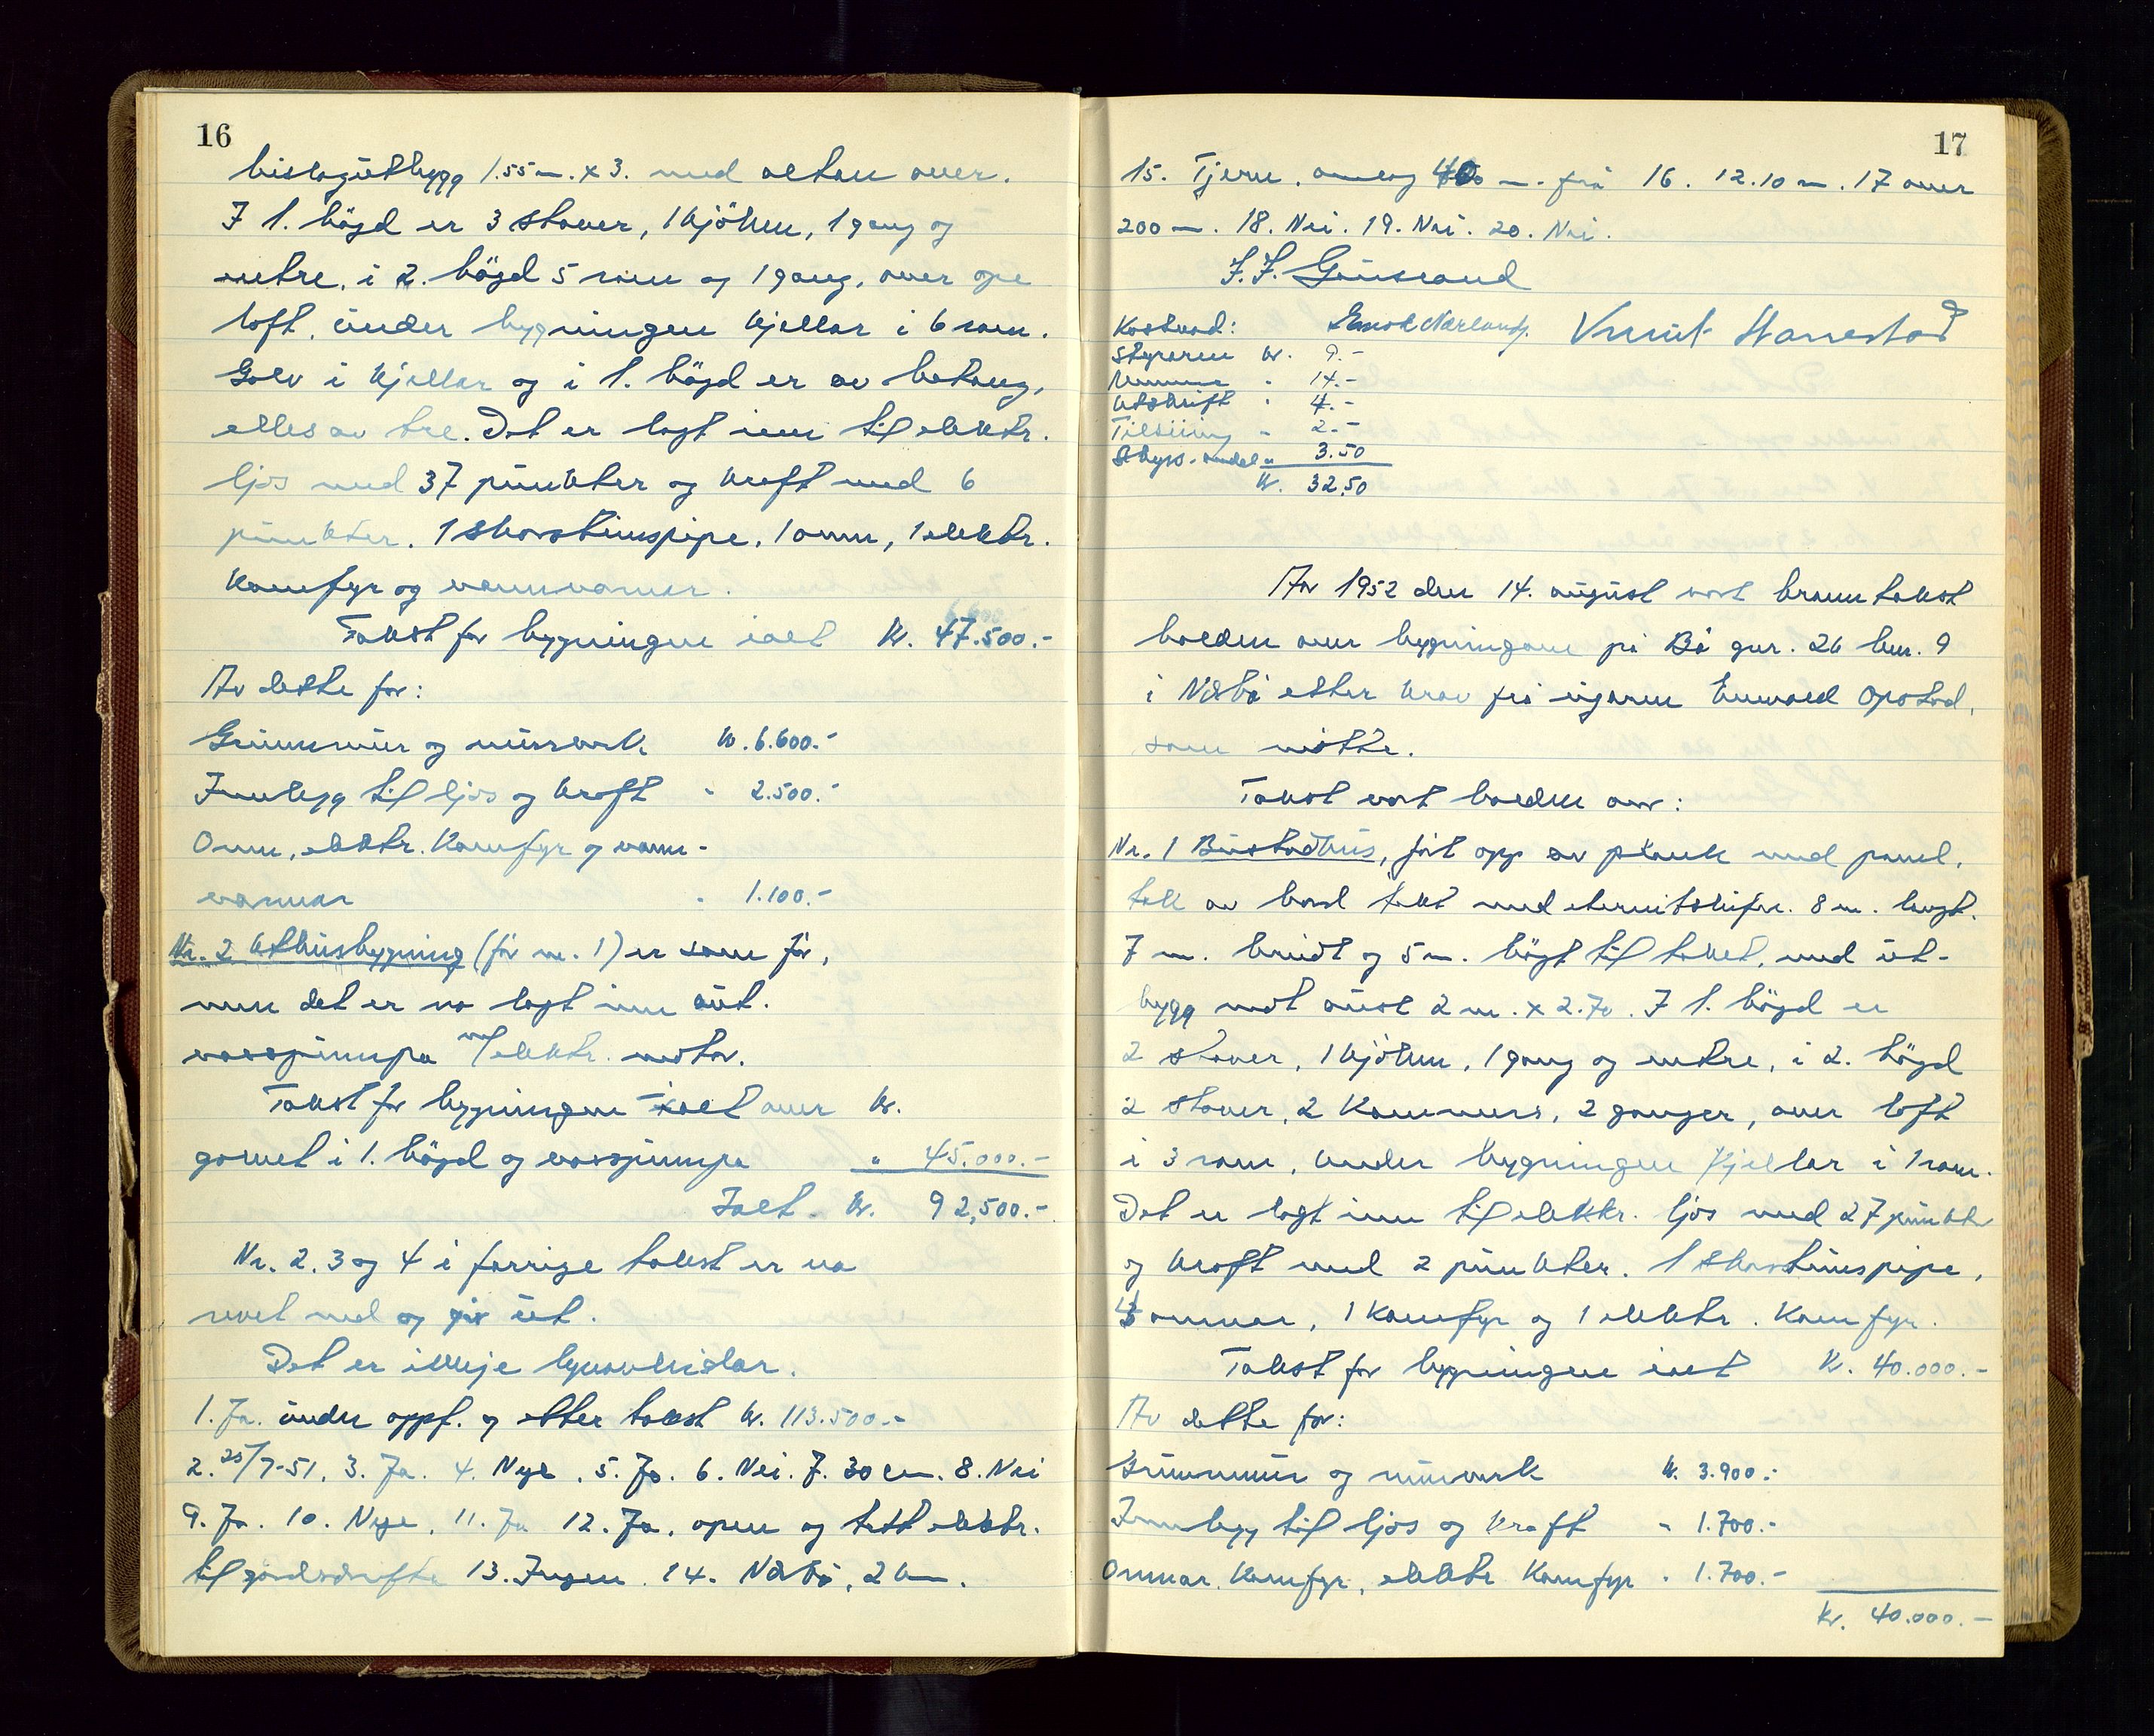 16
bislagutbygg 1.55 m. x 3. med altan over.
I 1. högd er 3 stover, 1 kjöken, 1 gang og
entre, i 2. högd 5 rom og 1 gang, over ope
loft, under bygningen kjellar i 6 rom.
Golv i kjellar og i 1. högd er av betong,
elles av tre. Det er lagt inn til elektr.
ljos med 37 punkter og kraft med 6
punkter. 1 skorsteinspipe, 1 omn, 1 elektr.
komfyr og vannvarmer.
Takst for bygningen ialt Kr. 47.500.-
Av dette for:
Grunnmur og murverk Kr. 6.600.-
Innlegg til ljos og kraft " 2.500.-
Omn, elektr. komfyr og vann-
varmar " 1.100.-
Nr. 2 Uthusbygning (før nr. 1) er som før,
men det er no lagt inn aut.
vasspumpa m/ elektr. motor.
Takst for bygningen ialt over Kr.
golvet i 1. högd og vasspumpa " 45.000.-
Ialt. Kr. 92,500.-
Nr. 2. 3 og 4 i forrige takst er no
revet ned og går ut.
Det er ikkje bruksskildar.
1. Ja. under oppf. og etter takst kr. 113.500.-
2. 25/7-51. 3. Ja. 4. Nye. 5. Ja. 6. Nei. 7. 30 cm. 8. Nei
9. Ja. 10. Nye. 11. Ja 12. Ja, open og tett elektr.
til gardsdrifta 13. Ingen. 14. Nærbø, 2 km.
17
15. Tjern, omlag 40 m. frå 16. 12.10 m. 17 over
200 m. 18. Nei. 19. Nei. 20. Nei.
Kostnad: Knut Harrestad
Styraren kr. 9.-
" 14.-
Utskrift " 4.-
" 2.-
Skyss. " 3.50
Kr. 32.50
År 1952 den 14. august vart branntakst
halden over bygningane på Bø gnr. 26 bnr. 9
i Nærbø etter krav frå eigaren Enevald Opstad,
som møtte.
Takst vart halden over:
Nr. 1 Bustadhus, ført opp av plank med panel,
tak av bord tekt med eternitskifer. 8 m. langt.
7 m. breidt og 5 m. högt til taket, med ut-
bygg mot aust 2 m. x 2.70. I 1. högd er
2 stover, 1 kjöken, 1 gang og entre, i 2. högd
2 stover, 2 kammers, 2 ganger, over loft
i 3 rom, under bygningen kjellar i 1 rom.
Det er lagt inn til elektr. ljos med 27 punkter
og kraft med 2 punkter. 1 skorsteinspipe,
omnar, 1 komfyr og 1 elektr. komfyr.
Takst for bygningen ialt Kr. 40.000.-
Av dette for:
Grunnmur og murverk Kr. 3.900.-
Innlegg til ljos og kraft " 1.700.-
Omnar, komfyr, elektr komfyr " 1.700.-
Kr. 40.000.-